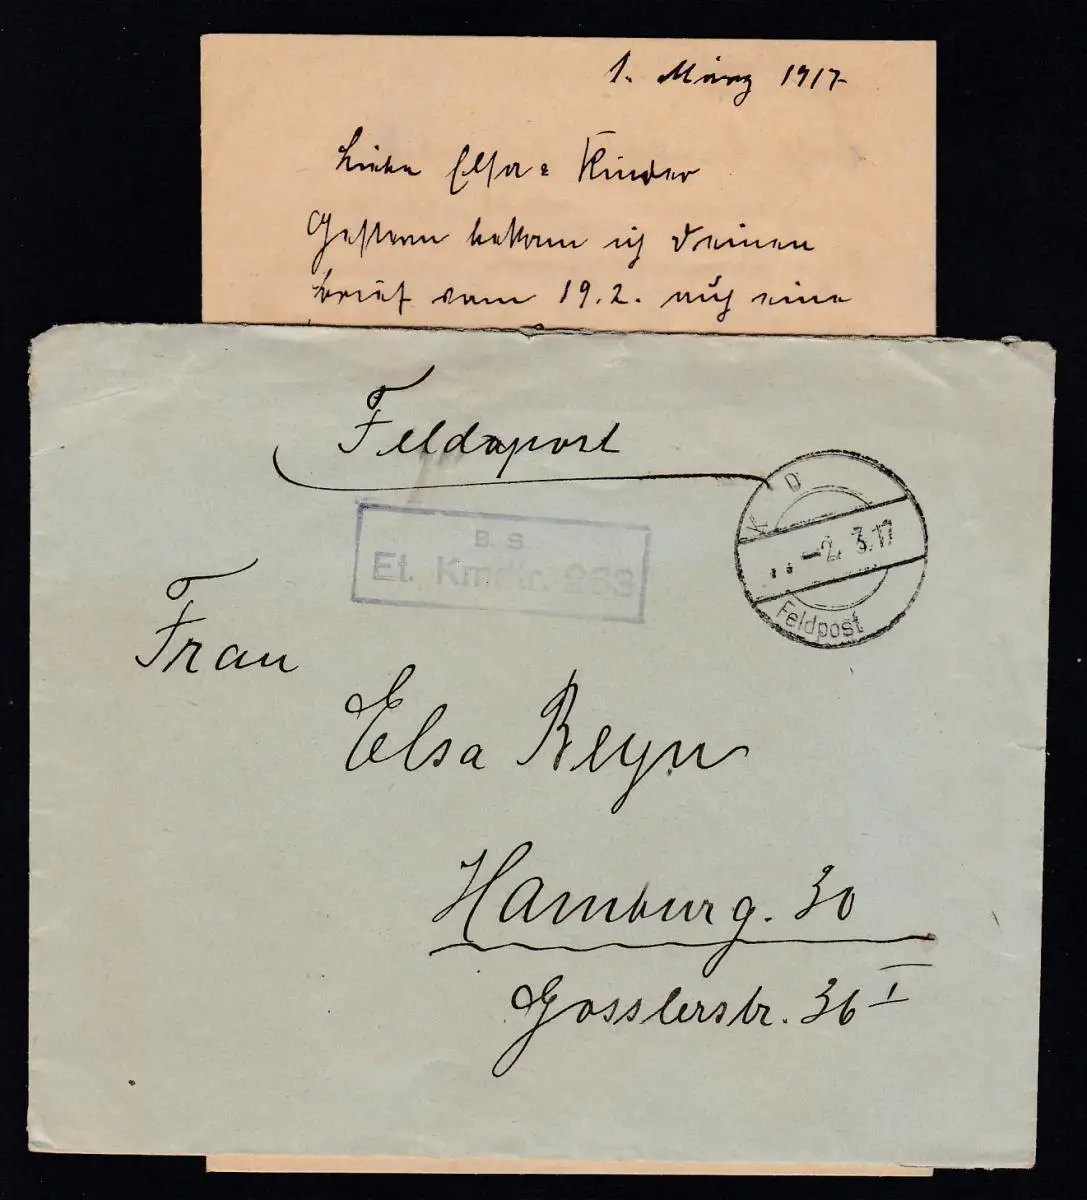 1. März 1917
Liebe Elsa & Kinder
Gestern bekam ich Deinen
Brief vom 19.2. auch eine
Feldpost
K D
-2. 3. 17
Feldpost
B. S.
Et. Kmdtr. 263
Frau
Elsa Beyn
Hamburg. 30
Gosslerstr. 36 I